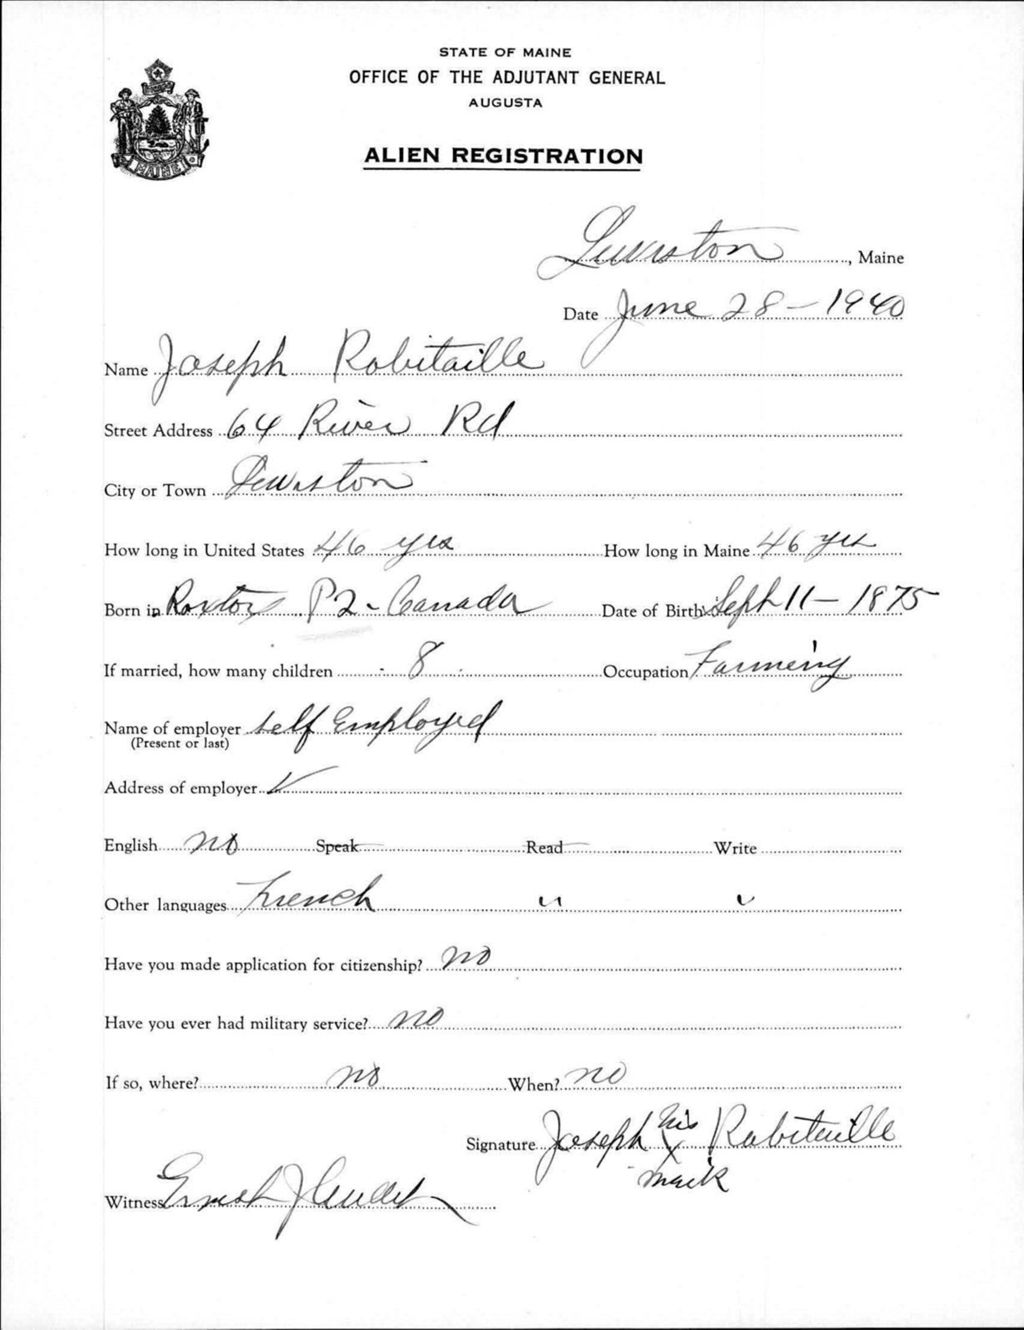 STATE OF MAINE
OFFICE OF THE ADJUTANT GENERAL
AUGUSTA
ALIEN REGISTRATION
MAINE
Lewiston, Maine
Date June 28 - 1940
Name Joseph Robitaille
Street Address 64 River Rd
City or Town Lewiston
How long in United States 46 yrs How long in Maine 46 yrs
Born in Roxton P2 - Canada Date of Birth Sept 11 - 1875
If married, how many children - 8 - Occupation Farming
Name of employer self Employed
(Present or last)
Address of employer ✓
English no Speak Read Write
Other languages French " "
Have you made application for citizenship? no
Have you ever had military service? no
If so, where? no When? no
Signature Joseph his X Robitaille
mark
Witness Ernest J